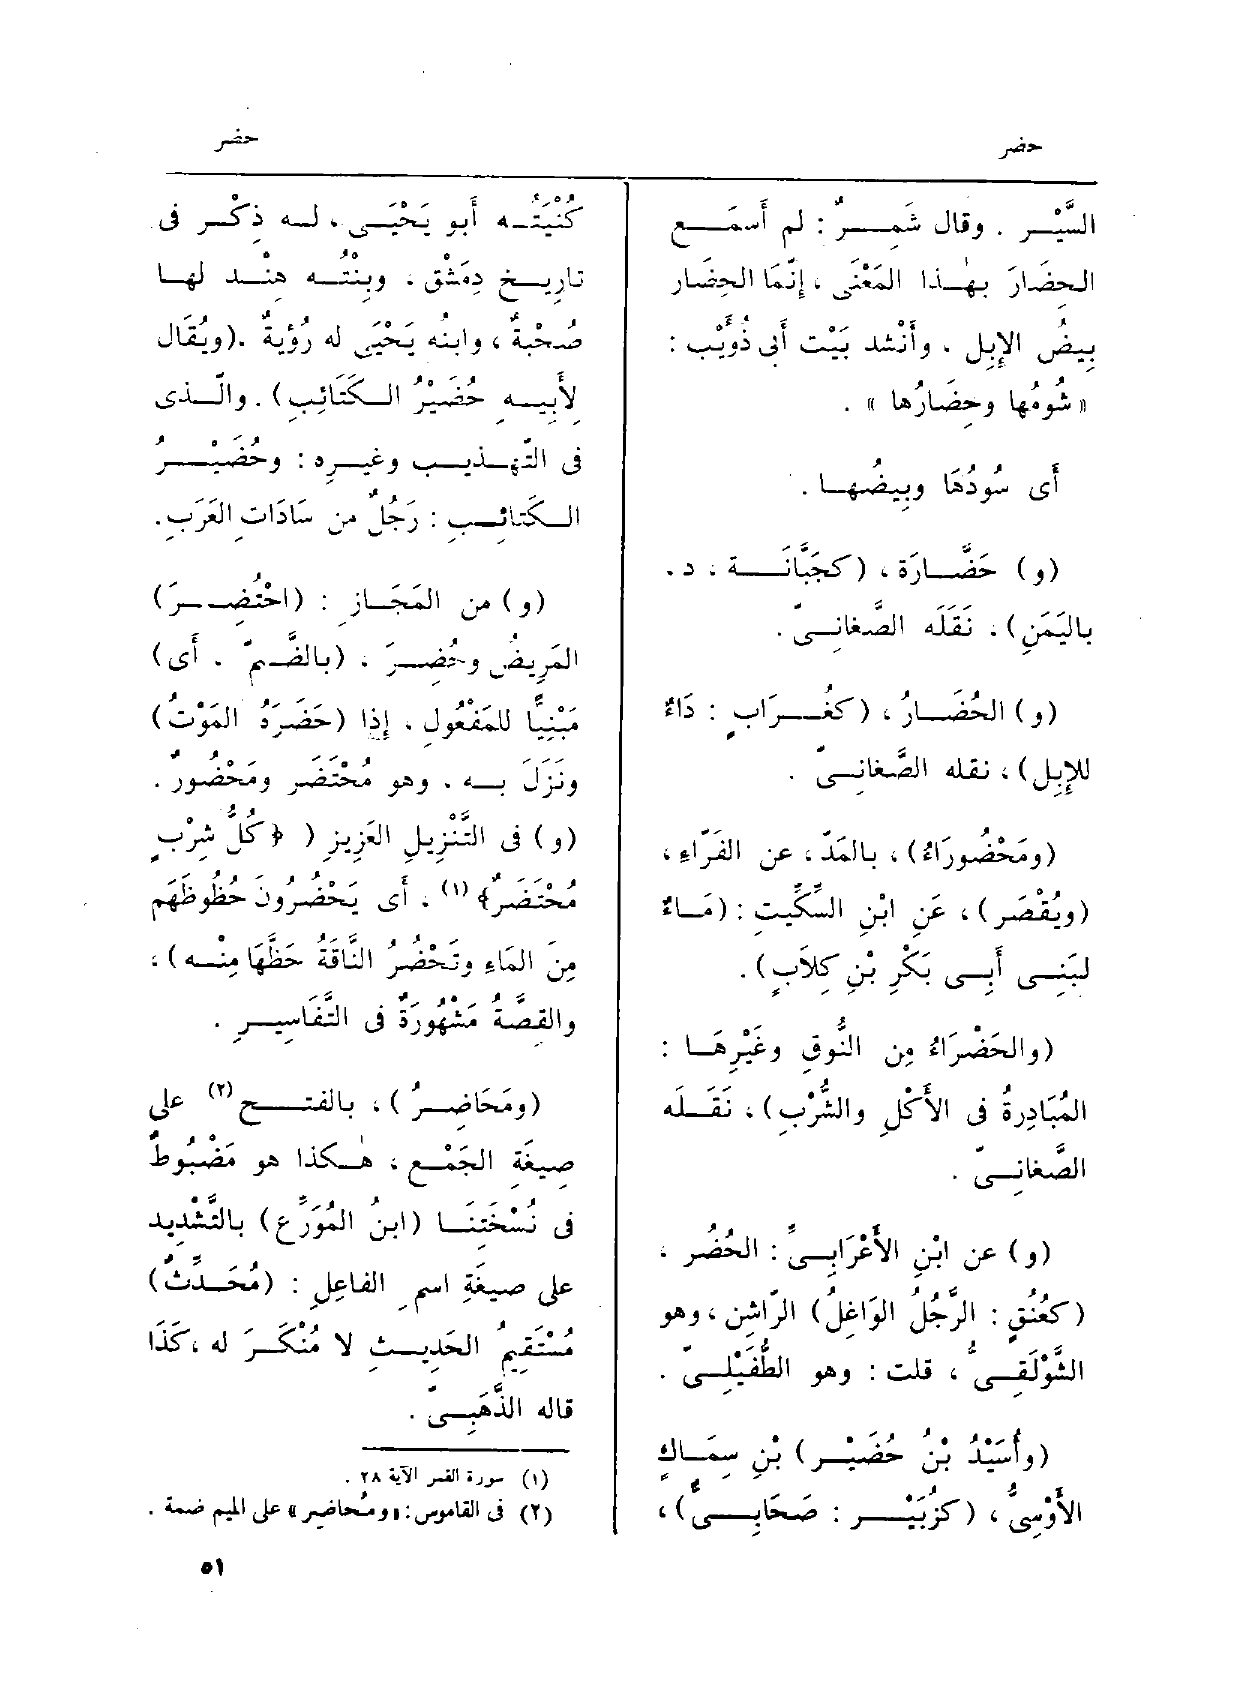 حضر
حضر
السَّيْر . وقال شَمِرٌ : لم أَسمَع
الحِضَارَ بهٰذا المَعْنَى ، إِنّمَا الحِضَار
بِيضُ الإِبِل . وأَنْشد بَيْت أَبى ذُوَّيْب :
« شُومُها وحِضَارُها » .
أَى سُودُهَا وبِيضُها .
(و) حَضَّارَة ، (كجَبَّانَة ، د .
باليَمَنِ) . نَقَلَه الصَّغانِىّ .
(و) الحُضَارُ ، (كغُرَابٍ : دَاءٌ
للإِبِل) ، نقله الصَّغانِىّ .
(ومَحْضُورَاءُ) ، بالمَدّ ، عن الفَرّاءِ ،
(ويُقْصَر) ، عَنِ ابْنِ السِّكِّيتِ : (مَاءٌ
لبَنِى أَبِى بَكْرِ بْنِ كِلاَبٍ) .
(والحَضْرَاءُ مِن النُّوقِ وغَيْرِهَا :
المُبَادِرةُ فى الأَكْلِ والشُّرْبِ) ، نَقَلَه
الصَّغانِىّ .
(و) عن ابْنِ الأَعْرَابِىّ : الحُضُر ،
(كعُنُقٍ : الرَّجُلُ الوَاغِلُ) الرّاشِن ، وهو
الشَّوْلَقِىُّ ، قلت : وهو الطُّفَيْلِىّ .
(وأُسَيْدُ بْنُ حُضَيْر) بْنِ سِمَاكٍ
الأَوْسِىُّ ، (كزُبَيْر : صَحَابِىٌّ) ،
كُنْيَتُه أَبو يَحْيَى ، له ذِكْر فى
تاريخ دِمَشْق ، وبِنْتُه هِنْد لها
صُحْبةٌ ، وابنُه يَحْيَى له رُؤيةٌ . (ويُقَال
لِأَبِيهِ حُضَيْرُ الكَتَائِبِ) . والّذى
فى التّهذِيب وغيرِه : وحُضَيْرُ
الكتائِبِ : رَجُلٌ من سَادَاتِ العَرَبِ .
(و) من المَجَازِ : (احْتُضِرَ)
المَرِيضُ وحُضِرَ ، (بالضَّمّ ، أَى)
مَبْنِيًّا للمَفْعُولِ ، إِذا (حَضَرَهُ المَوْتُ)
ونَزَلَ به . وهو مُحْتَضَر ومَحْضُورٌ .
(و) فى التَّنْزِيلِ العَزِيزِ ( ﴿كُلُّ شِرْبٍ
مُحْتَضَرٌ﴾ (١) ، أَى يَحْضُرُونَ حُظُوظَهَم
مِنَ المَاءِ وتَحْضُرُ النَّاقَةُ حَظَّهَا مِنْه) ،
والقِصَّةُ مَشْهُورَةٌ فى التَّفَاسِير .
(ومَحَاضِرُ) ، بالفتح (٢) على
صِيغَةِ الجَمْع ، هٰكذا هو مَضْبُوطٌ
فى نُسْخَتِنَا (ابنُ المُوَرِّع) بالتَّشْدِيد
على صِيغَةِ اسمِ الفاعِلِ : (مُحَدِّثٌ)
مُسْتَقِيمُ الحَدِيثِ لا مُنْكَرَ له ، كَذَا
قاله الذَّهَبِىّ .
(١) سورة القمر الآية ٢٨ .
(٢) فى القاموس : «ومُحاضِر» على الميم ضمة .
٥١